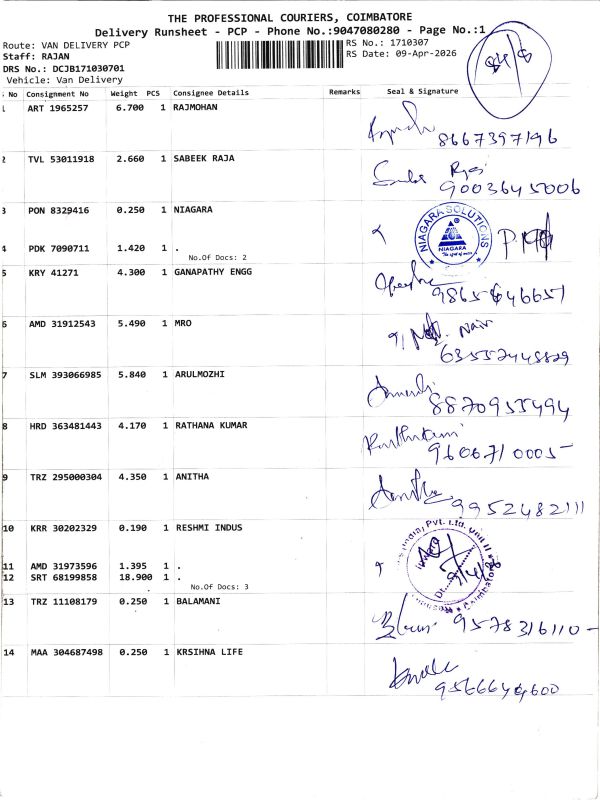 THE PROFESSIONAL COURIERS, COIMBATORE
Delivery Runsheet - PCP - Phone No.:9047080280 - Page No.:1
Route: VAN DELIVERY PCP
RS No.: 1710307
Staff: RAJAN
RS Date: 09-Apr-2026
DRS No.: DCJB171030701
Vehicle: Van Delivery
No Consignment No Weight PCS Consignee Details Remarks Seal & Signature
1 ART 1965257 6.700 1 RAJMOHAN
8667397196
2 TVL 53011918 2.660 1 SABEEK RAJA
9003645006
3 PON 8329416 0.250 1 NIAGARA
NIAGARA SOLUTIONS
NIAGARA
4 PDK 7090711 1.420 1 .
No.Of Docs: 2
5 KRY 41271 4.300 1 GANAPATHY ENGG
6 AMD 31912543 5.490 1 MRO
7 SLM 393066985 5.840 1 ARULMOZHI
8870955494
8 HRD 363481443 4.170 1 RATHANA KUMAR
9606710005
9 TRZ 295000304 4.350 1 ANITHA
Anitha
9952482111
10 KRR 30202329 0.190 1 RESHMI INDUS
Pvt. Ltd. Unit II
Coimbatore
11 AMD 31973596 1.395 1 .
12 SRT 68199858 18.900 1 .
No.Of Docs: 3
13 TRZ 11108179 0.250 1 BALAMANI
9578316110
14 MAA 304687498 0.250 1 KRSIHNA LIFE